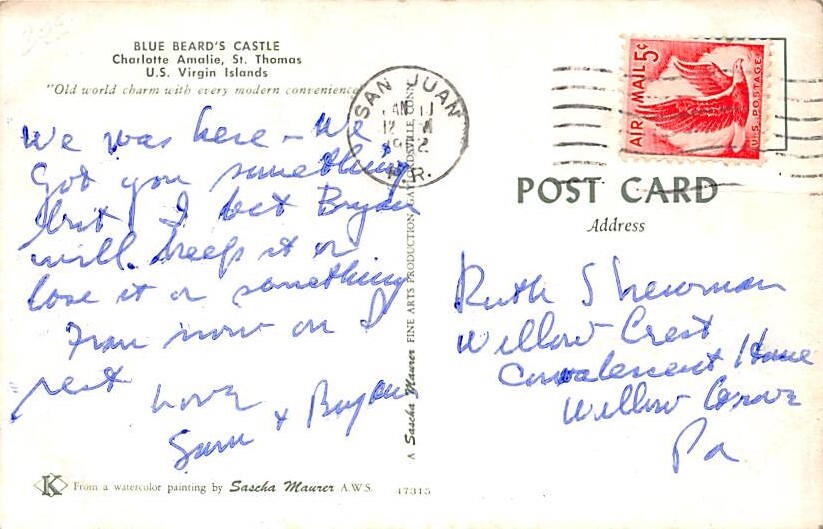 BLUE BEARD'S CASTLE
Charlotte Amalie, St. Thomas
U.S. Virgin Islands
"Old world charm with every modern convenience
We was here - We
Got you something
but I bet Bryan
will keep it or
lose it or something
From now on I
rest
Love
Sam + Bryan
From a watercolor painting by Sascha Maurer A.W.S. 47315
A Sascha Maurer FINE ARTS PRODUCTION, GAYLORDSVILLE, CONN.
SAN JUAN
12
P.R.
AIR MAIL 5¢
U.S. POSTAGE
POST CARD
Address
Ruth Shewman
Willow Crest
Convalescent Home
Willow Grove
Pa